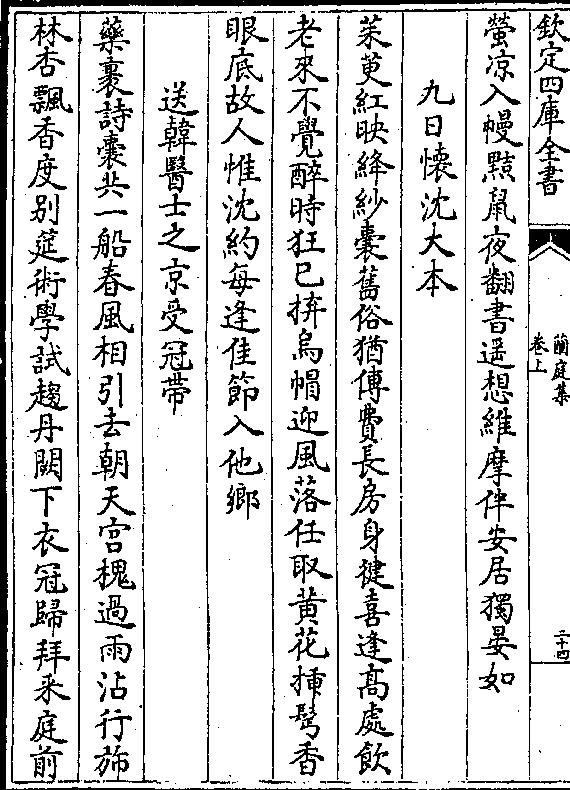 欽定四庫全書
蘭庭集
卷上
二十四
螢凉入幔㸃鼠夜翻書遥想維摩伴安居獨晏如
九日懷沈大本
茱萸紅映絳紗囊舊俗猶傳費長房身健喜逢髙處飲
老來不覺醉時狂已拚烏帽迎風落任取黄花揷鬂香
眼底故人惟沈約每逢佳節入他鄉
送韓醫士之京受冠帶
藥裹詩囊共一船春風相引去朝天宫槐過雨沾行斾
林杏飄香度别筵術學試趨丹闕下衣冠歸拜釆庭前